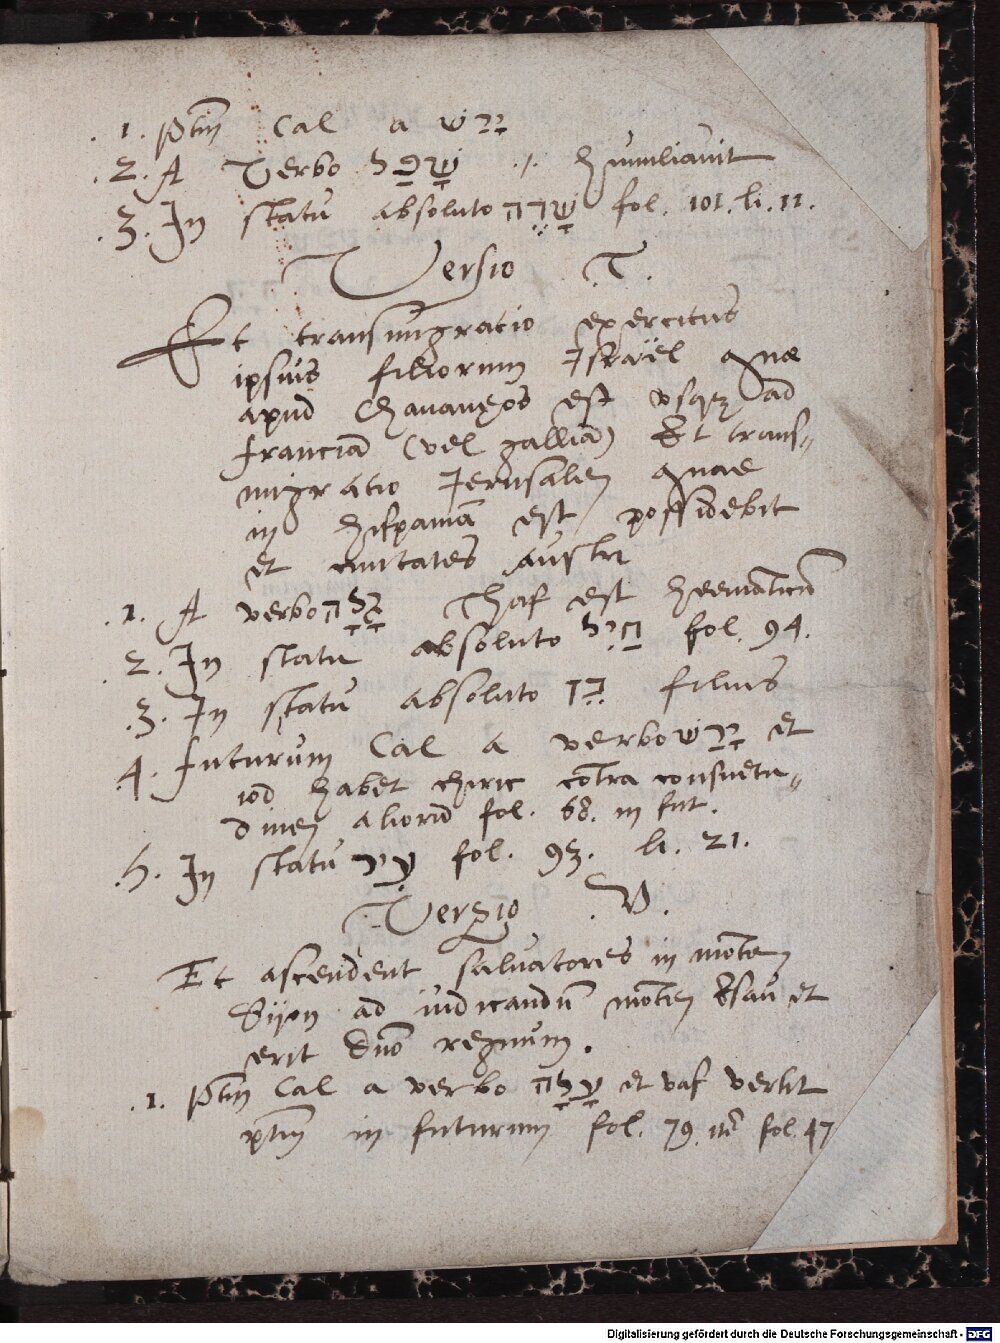 .1. Ptm̄ Cal a ירש
.2. A Verbo שָׁפֵל .i. humiliauit
.3. In statu absoluto שָׂדֶה fol. 101. li. 11.
Versio .T.
Et transmigratio exercitus
ipsius filiorum Israël quæ
apud Chananęos est vsqꝫ ad
franciā (vel galliā) Et trans„
migratio Ierusalem quae
in hispaniā est possidebit
et ciuitates austri
.1. A verbo גָּלָה Thaf est heemāticū
.2. In statu absoluto חַיִל fol. 94.
.3. In statu absoluto בֵּן filius
.4. futurum Cal a verbo יָרַשׁ et
iod habet chiric cōtra consuetu„
dinem aliorū fol. 68. in fut.
.5. In statu עִיר fol. 93. li. 21.
Versio .V.
Et ascendent saluatores in mōtem
Sijon ad iudicandū mōtem Esau et
erit dn̄o regnum.
.1. Ptm̄ Cal a verbo עָלָה et vaf vertit
ptm̄ in futurum fol. 79. itē fol. 47
Digitalisierung gefördert durch die Deutsche Forschungsgemeinschaft - DFG